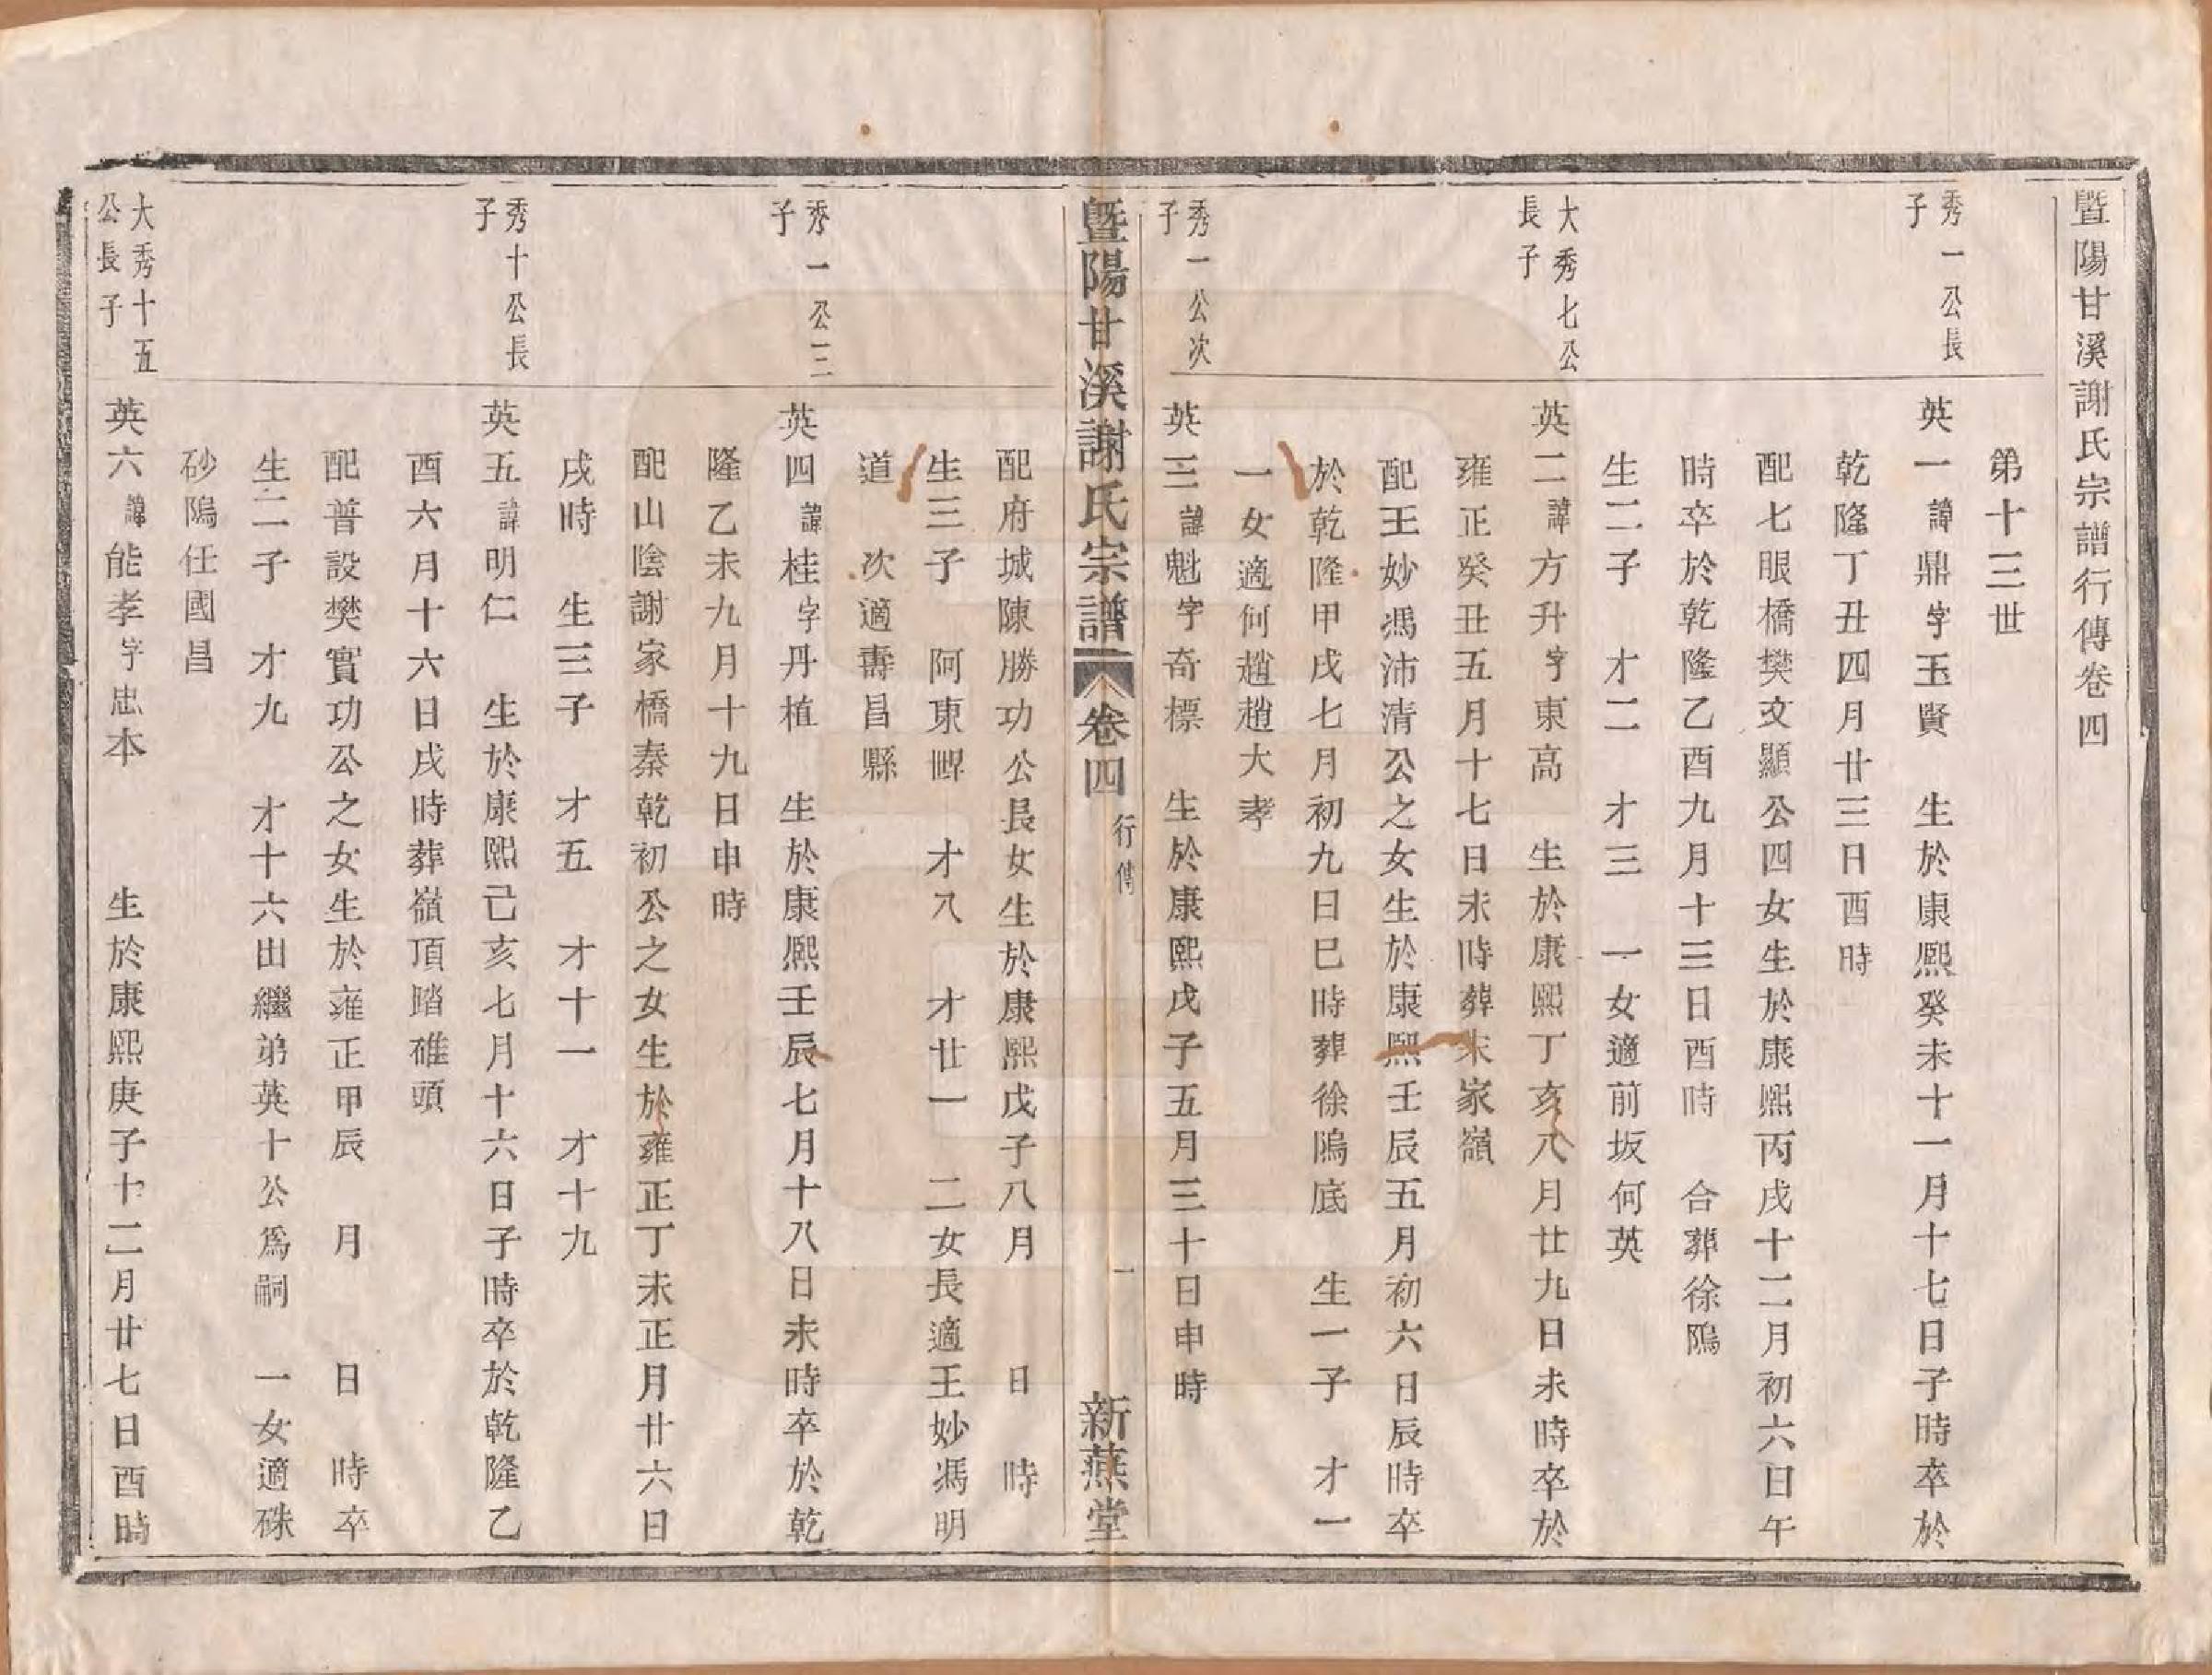 暨陽甘溪謝氏宗譜行傳卷四
第十三世
秀一公長
子
英一諱鼎字玉賢　生於康熙癸未十一月十七日子時卒於
乾隆丁丑四月廿三日酉時
配七眼橋樊文顯公四女生於康熙丙戌十二月初六日午
時卒於乾隆乙酉九月十三日酉時　合葬徐隝
生二子　才二　才三　一女適前坂何英
大秀七公
長子
英二諱方升字東高　生於康熙丁亥八月廿九日未時卒於
雍正癸丑五月十七日未時葬朱家嶺
配王妙馮沛清公之女生於康熙壬辰五月初六日辰時卒
於乾隆甲戌七月初九日巳時葬徐隝底　生一子　才一
一女適何趙趙大孝
秀一公次
子
英三諱魁字奇標　生於康熙戊子五月三十日申時
暨陽甘溪謝氏宗譜　卷四　行傳　一　新燕堂
配府城陳勝功公長女生於康熙戊子八月　日　時
生三子　阿東　才八　才廿一　二女長適王妙馮明
道　次適壽昌縣
秀一公三
子
英四諱桂字丹植　生於康熙壬辰七月十八日未時卒於乾
隆乙未九月十九日申時
配山陰謝家橋秦乾初公之女生於雍正丁未正月廿六日
戌時　生三子　才五　才十一　才十九
秀十公長
子
英五諱明仁　生於康熙己亥七月十六日子時卒於乾隆乙
酉六月十六日戌時葬嶺頂踏碓頭
配普設樊實功公之女生於雍正甲辰　月　日　時卒
生二子　才九　才十六出繼弟英十公爲嗣　一女適硃
砂隝任國昌
大秀十五
公長子
英六諱能孝字忠本　生於康熙庚子十二月廿七日酉時